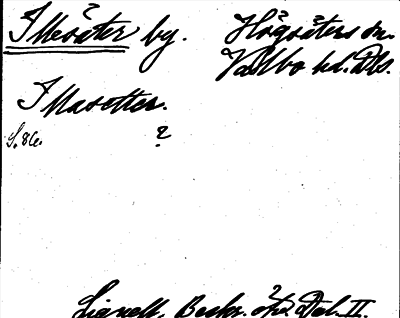 Illesäter by. Högsäters sn.
Valbo hd. Dls.
Illasetter.
S. 86. ?
Lignell, Beskr. öfv. Dal. II.